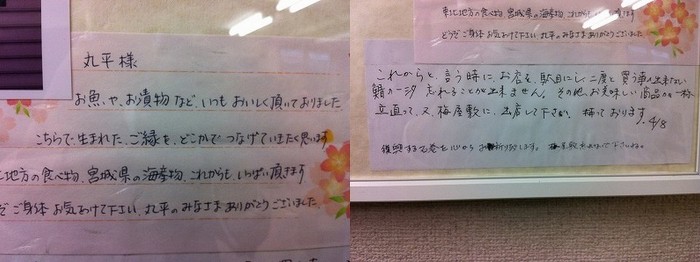 丸平様
お魚や、お漬物など、いつもおいしく頂いておりました
こちらで生まれた、ご縁を、どこかでつなげていきたく思います
地方の食べ物、宮城県の海産物、これからも、いっぱい頂きます
ご身体お気をつけて下さい、丸平のみなさまありがとうございました。
東北地方の食べ物、宮城県の海産物、これからも
どうぞご身体お気をつけて下さい、丸平のみなさまありがとうございました
これからと、言う時に、お店を、駄目にし、二度と買う事出来ない
忘れることが出来ません。その他、お美味しい商品
立直って、又、梅屋敷に、出店して下さい、待っております。
4/8
復興
心からお祈り致します。